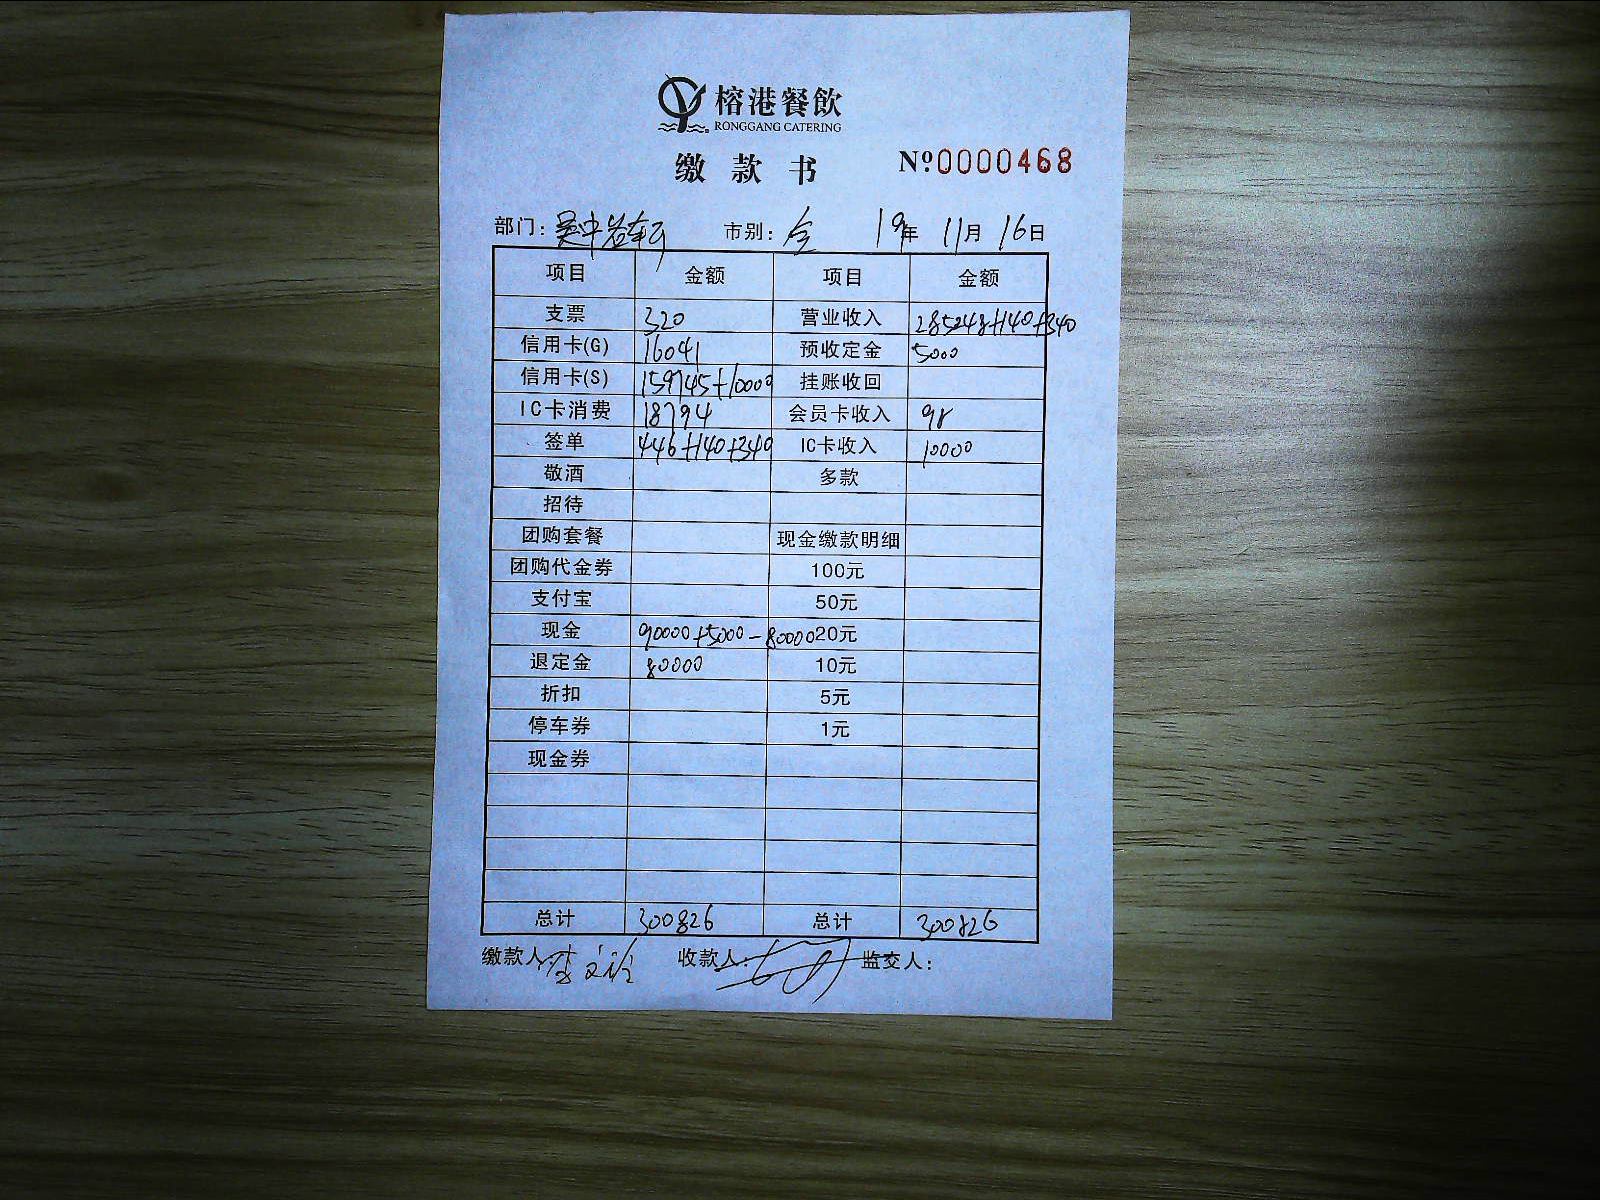 榕港餐飲
RONGGANG CATERING
缴款书 Nº.0000468
部门: 吴中 市别: 全 19年 11月 16日
项目 金额 项目 金额
支票 320 营业收入 285248+140+340
信用卡(G) 16041 预收定金 5000
信用卡(S) 159745+10000 挂账收回
IC卡消费 18794 会员卡收入 98
签单 446+140+340 IC卡收入 10000
敬酒 多款
招待
团购套餐 现金缴款明细
团购代金券 100元
支付宝 50元
现金 90000+5000-80000 20元
退定金 80000 10元
折扣 5元
停车券 1元
现金券
总计 300826 总计 300826
缴款人: 李 收款人: 监交人: